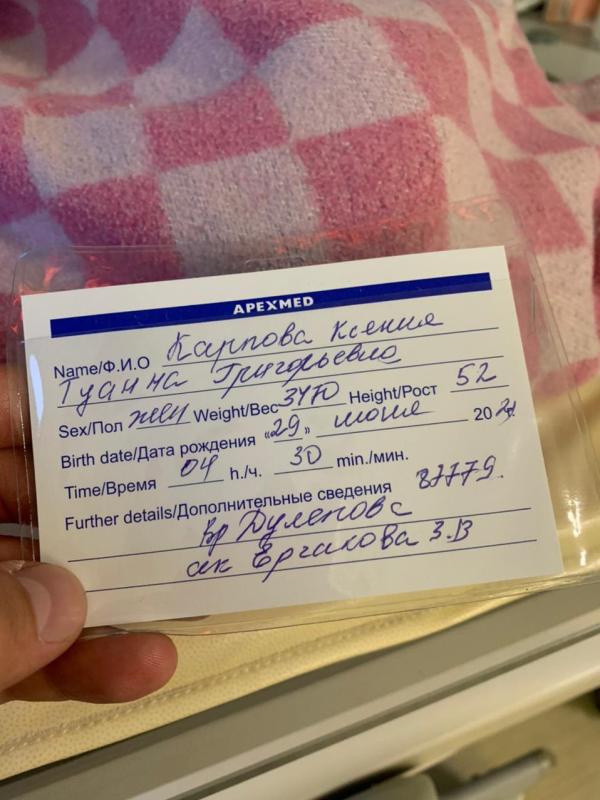 APEXMED
Name/Ф.И.О Карпова Ксения
Григорьевна
Sex/Пол жен Weight/Вес 3470 Height/Рост 52
Birth date/Дата рождения «29» июня 20
Time/Время 04 h./ч. 30 min./мин.
Further details/Дополнительные сведения 87779.
Вр Дулепова
ак Ергакова З.В